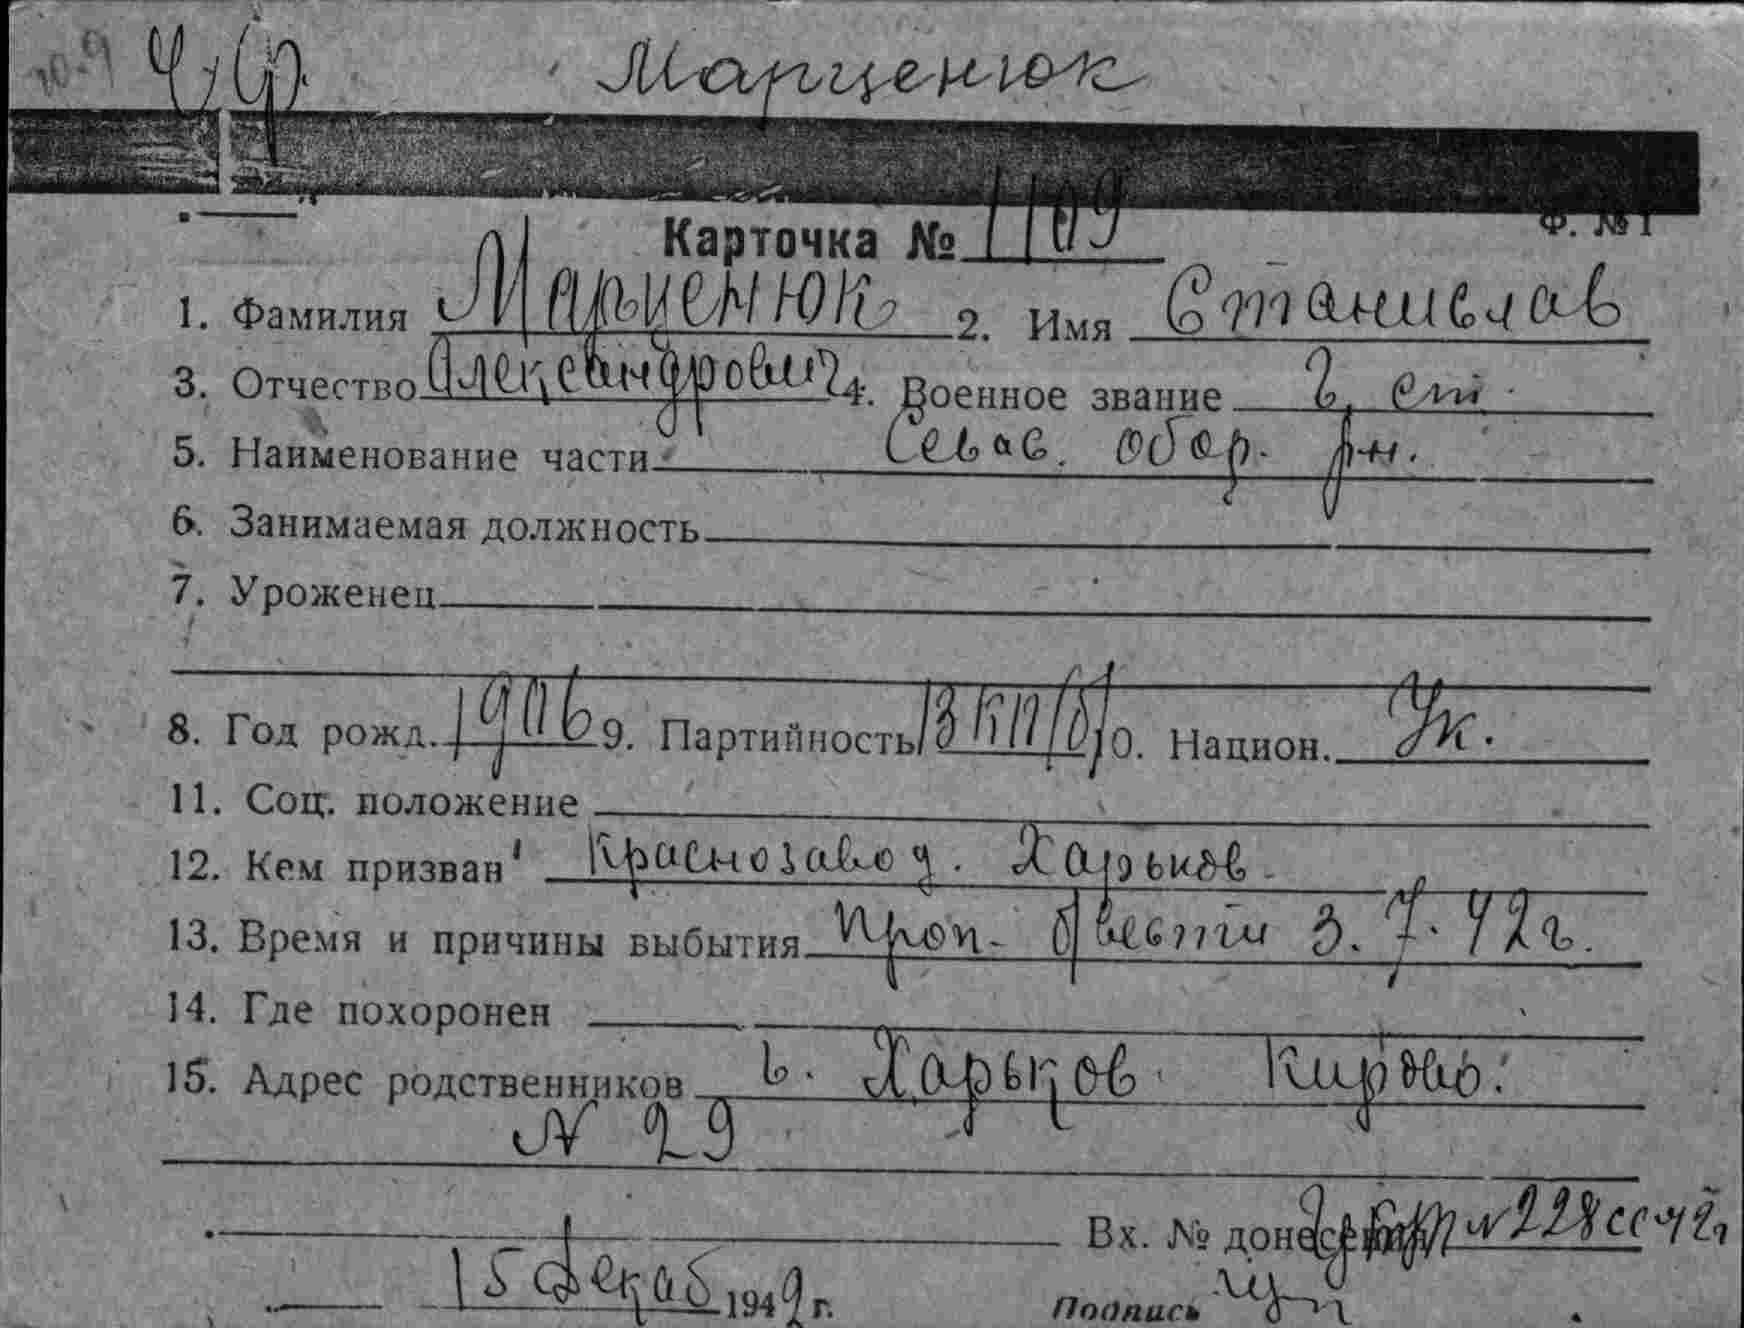 Марценюк
Ф. № 1
Карточка № 1109
1. Фамилия Марценюк 2. Имя Станислав
3. Отчество Александрович 4. Военное звание 2. ст.
5. Наименование части Севас. обор. рн.
6. Занимаемая должность
7. Уроженец
8. Год рожд. 1906 9. Партийность ВКП(б) 10. Национ. Ук.
11. Соц. положение
12. Кем призван Краснозавод. Харьков.
13. Время и причины выбытия Проп. б/вести 3.7.42г.
14. Где похоронен
15. Адрес родственников г. Харьков. Киров.
N 29
Вх. № донес N 228сс 42г
15 Декаб 1942 г. Подпись